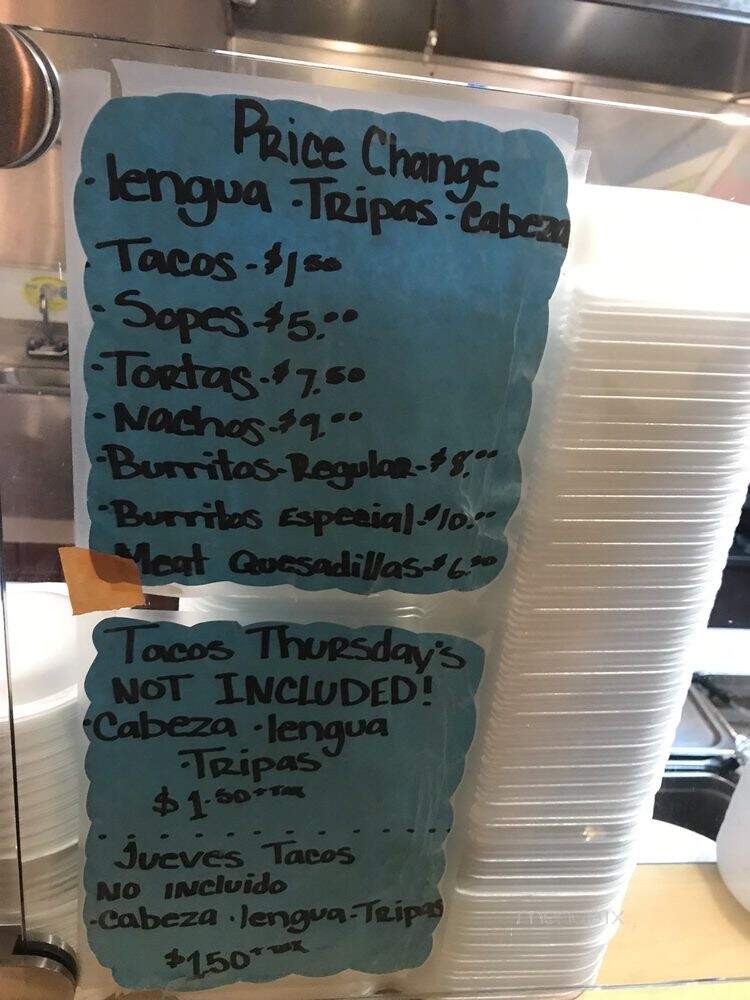 Price Change
·lengua ·Tripas-Cabeza
·Tacos-$1.50
·Sopes-$5.00
-Tortas-$7.50
-Nachos-$9.00
-Burritos-Regular-$8.00
·Burritos Especial-$10.00
Meat Quesadillas-$6.00
Tacos Thursday's
NOT INCLUDED!
·Cabeza ·lengua
·Tripas
$1.50+Tax
Jueves Tacos
NO INCluido
-Cabeza ·lengua-Tripas
$1.50+Tax